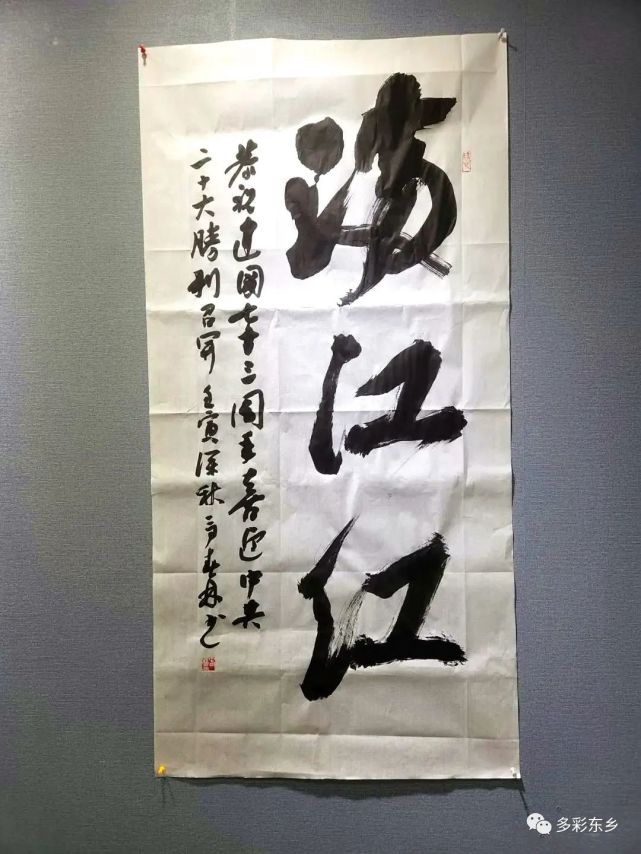 满江红
恭祝建国七十三周年喜迎中共
二十大勝利召開 壬寅深秋 马春林书
多彩东乡